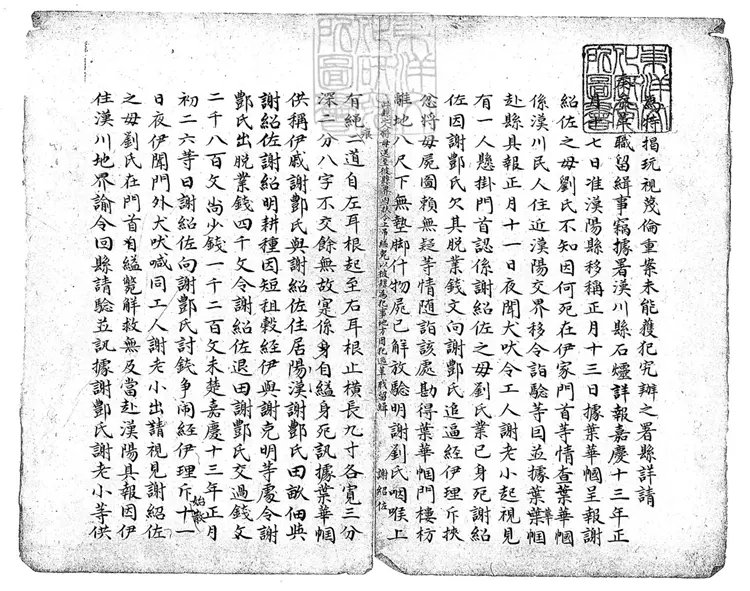 為特揭玩視蔑倫重案未能獲犯究辦之署縣詳請
職留緝事竊據署漢川縣石爐詳報嘉慶十三年正
月十七日准漢陽縣移稱正月十三日據葉華幗呈報謝
紹佐之母劉氏不知因何死在伊家門首等情查葉華幗
係漢川民人住近漢陽交界移令詣驗等因並據葉華幗
赴縣具報正月十一日夜聞犬吠令工人謝老小起視見
有一人懸掛門首認係謝紹佐之母劉氏業已身死謝紹
佐因謝酆氏欠其脫業錢文向謝酆氏追逼經伊理斥挾
忿將母屍圖賴無疑等情隨詣該處勘得葉華幗門樓枋
離地八尺下無墊脚什物屍已解放驗明謝劉氏咽喉上
謝紹佐
有繩痕二道自左耳根起至右耳根止橫長九寸各寬三分
深二分八字不交餘無故寔係身自縊身死訊據葉華幗
供稱伊戚謝酆氏與謝紹佐住居陽漢謝酆氏田畝佃與
謝紹佐謝紹明耕種因短租穀經伊與謝克明等處令謝
酆氏出脫業錢四千文令謝紹佐退田謝酆氏交過錢文
二千八百文尚少錢一千二百文未楚嘉慶十三年正月
初二六等日謝紹佐向謝酆氏討錢爭鬧經伊理斥始散十一
日夜伊聞門外犬吠喊同工人謝老小出請視見謝紹佐
之母劉氏在門首自縊斃解救無及當赴漢陽具報因伊
住漢川地界諭令回縣請驗並訊據謝酆氏謝老小等供